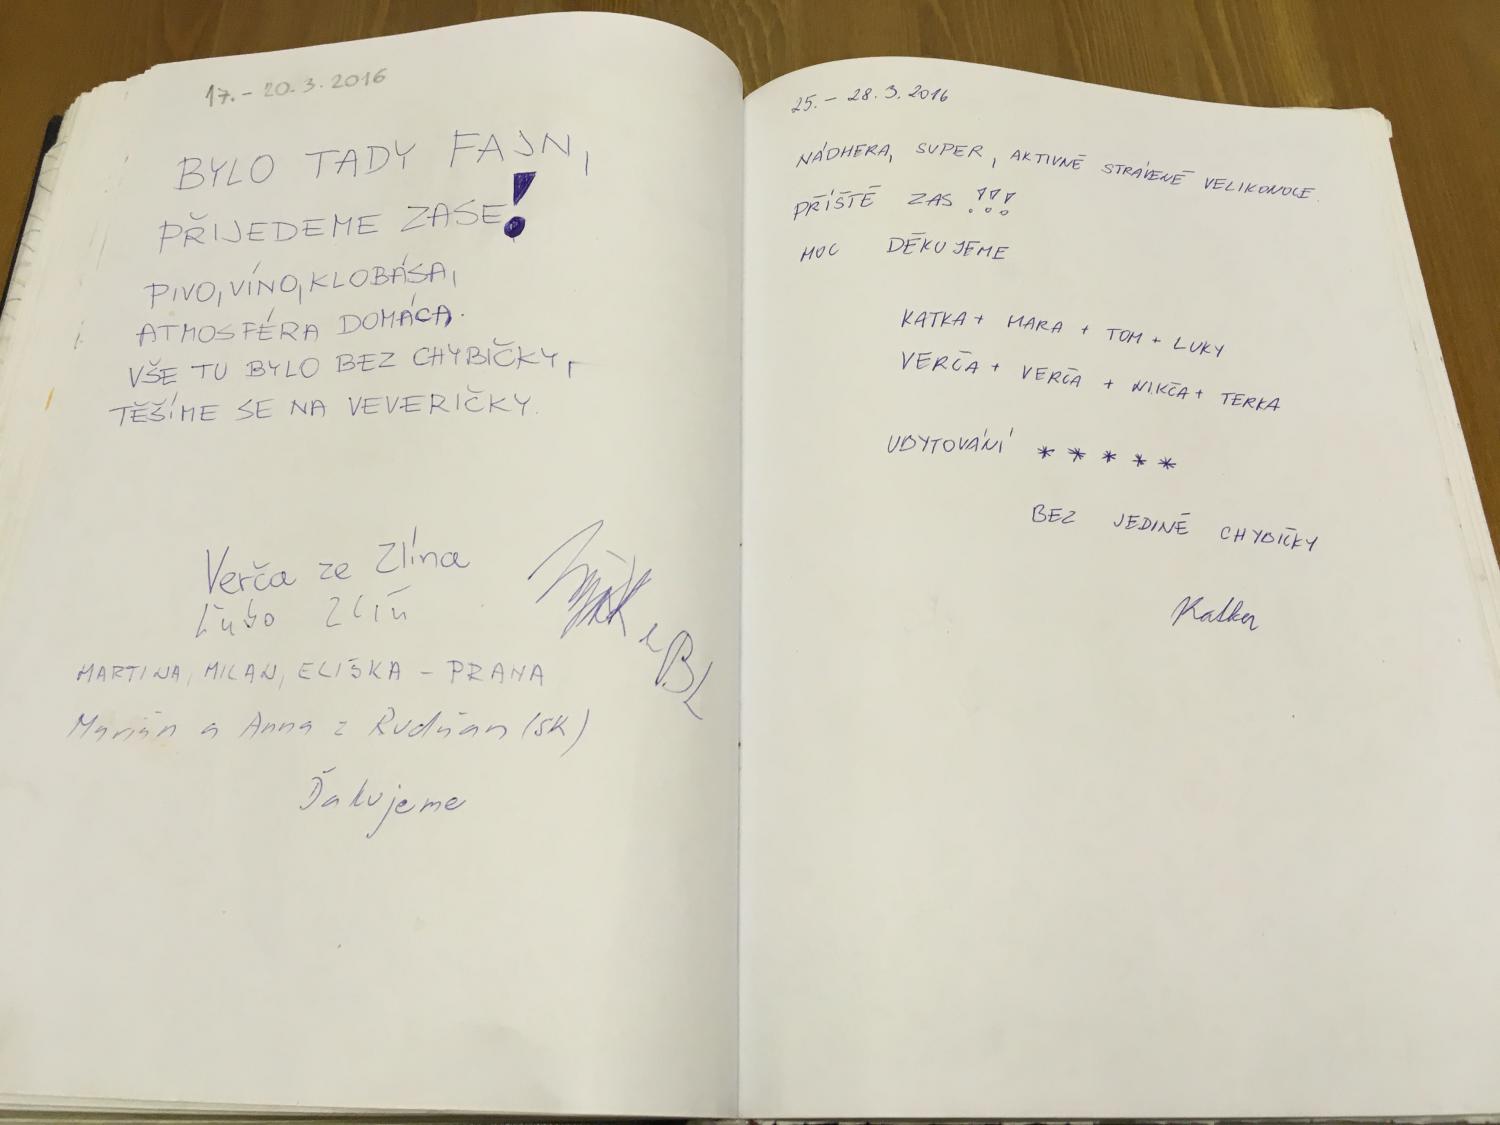 17. - 20. 3. 2016
BYLO TADY FAJN,
PŘIJEDEME ZASE!
PIVO, VÍNO, KLOBÁSA,
ATMOSFÉRA DOMÁCA.
VŠE TU BYLO BEZ CHYBIČKY,
TĚŠÍME SE NA VEVERIČKY.
Verča ze Zlína
Ľubo Zlín
MARTINA, MILAN, ELIŠKA - PRAHA
Marián a Anna z Rudňan (SK)
Ďakujeme
25. - 28. 3. 2016
NÁDHERA, SUPER, AKTIVNĚ STRÁVENÉ VELIKONOCE.
PŘÍŠTĚ ZAS !!!
MOC DĚKUJEME
KATKA + MARA + TOM + LUKY
VERČA + VERČA + NIKČA + TERKA
UBYTOVÁNÍ * * * * *
BEZ JEDINÉ CHYBIČKY
Katka